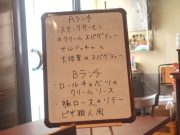 Aランチ
スモークサーモン
のクリームスパゲティー
サルシッチャと
木根菜のスパゲティー
Bランチ
ロールキャベツの
クリームソース
豚ロースのソテー
ピザ職人風